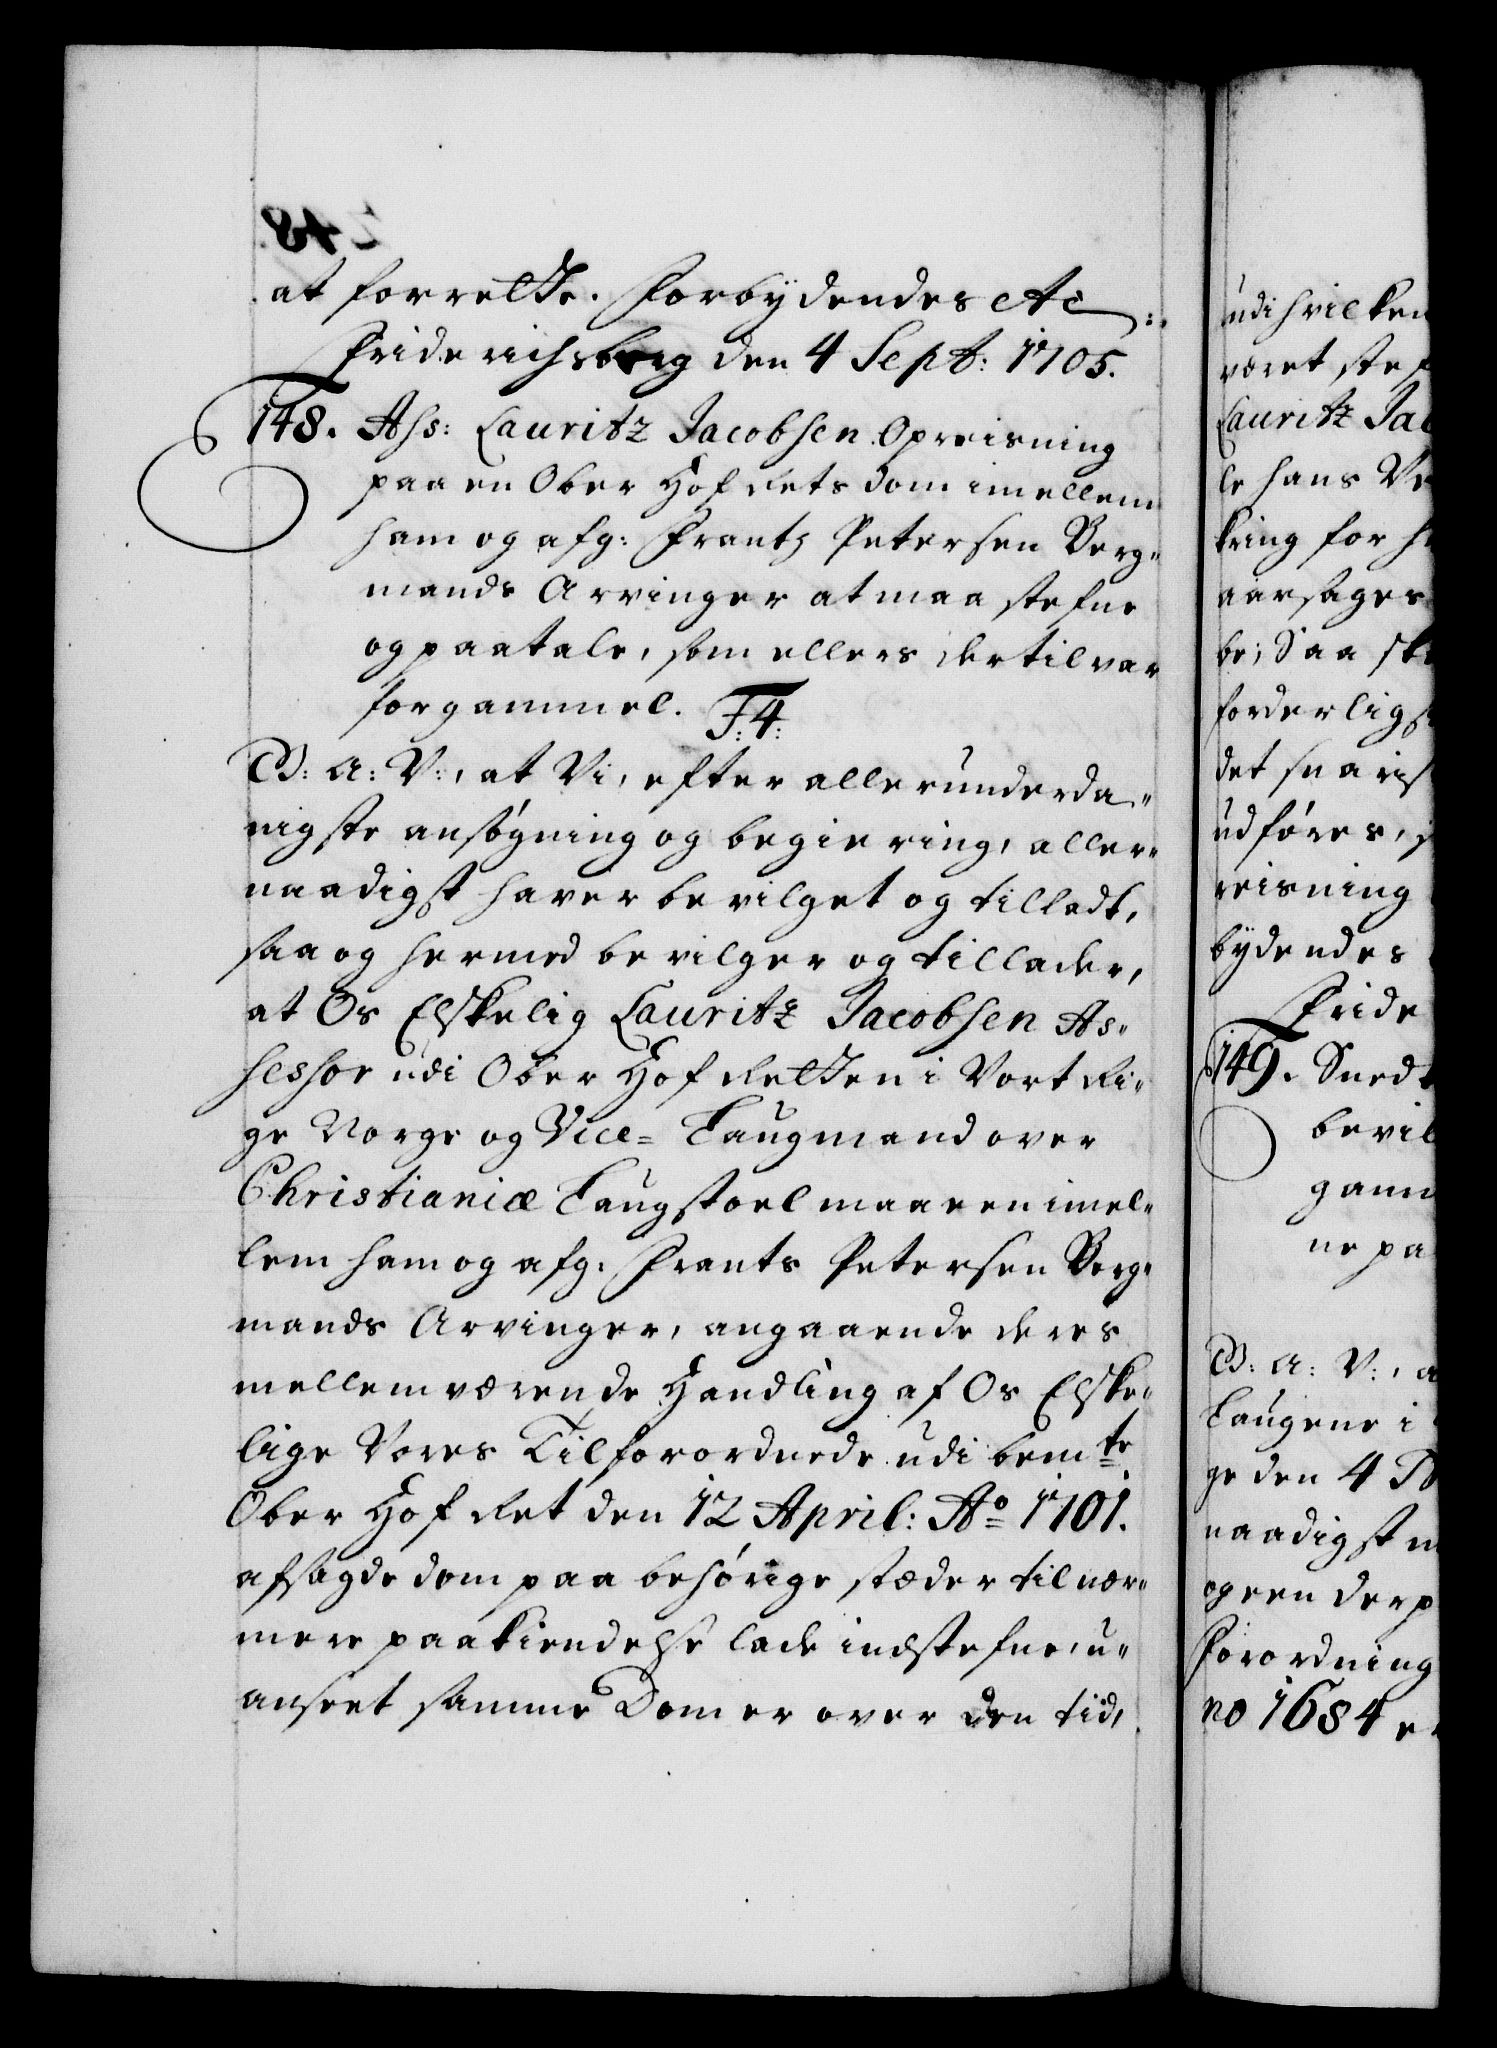 at forrette. Forbydendes etc:
Friderichsberg den 4 Sept: 1705.
148. Ass: Lauritz Jacobsen Opreisning
paa en Ober Hof Rets dom imellem
ham og afg: Frantz Petersen Berg-
mands Arvinger at maa stefne
og paatale, som ellers dertil var
for gammel. F:4:
C5: A: V:, at Vi, efter allerunderda-
nigste ansøgning og begiering, aller-
naadigst haver bevilget og tilladt,
saa og hermed bevilger og tillader,
at Os Elskelig Lauritz Jacobsen As-
sessor udi Ober Hof Retten i Vort Ri-
ge Norge og Vice- Laugmand over
Christianiæ Laugstoel maa een imel-
lem ham og afg: Frants Petersen Berg-
mands Arvinger, angaaende deres
mellemværende Handling af Os Elske-
lige Vores Tilforordnede udi bemte
Ober Hof Ret den 12 April: Ao 1701.
afsagde dom paa behörige stæder til nær-
mere paakiendelse lade indstefne, u-
anseet samme Dom er over den tid,
udi hvilken
været stef
Lauritz Jac
le hans Ve
kring for h
aarsages
be; Saa ske
forderligst
det snarist
udføres, s
reisning
bydendes
Fride
149. Sned
bevil
gam
ne pa
C5: A: V:, a
Laugene i
ge den 4
naadigst
og een derp
Forordning
no 1684 e